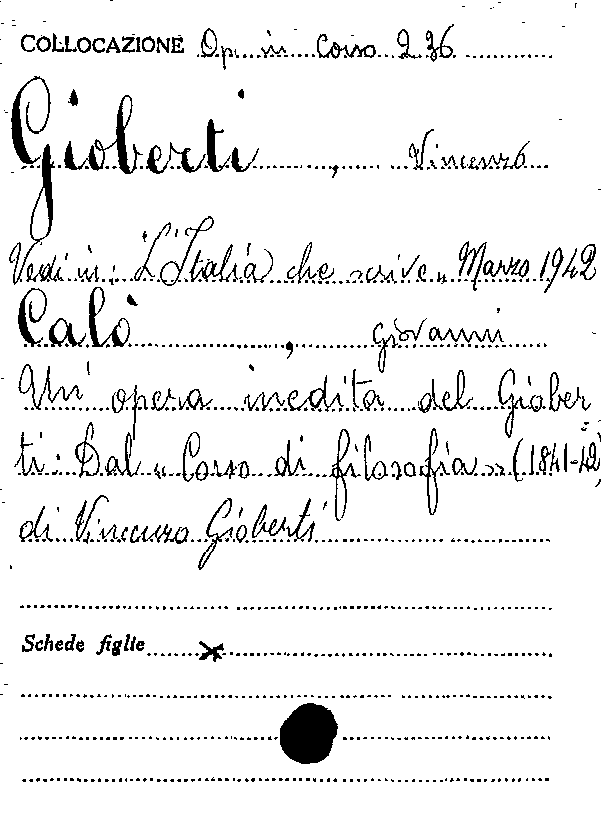 COLLOCAZIONE Op. in corso 2 36
Gioberti, Vincenzo
Vedi in: "L'Italia che scrive„ Marzo 1942
Calò, Giovanni
Un' opera inedita del Giober
ti: Dal « Corso di filosofia » (1841-42)
di Vincenzo Gioberti
Schede figlie x